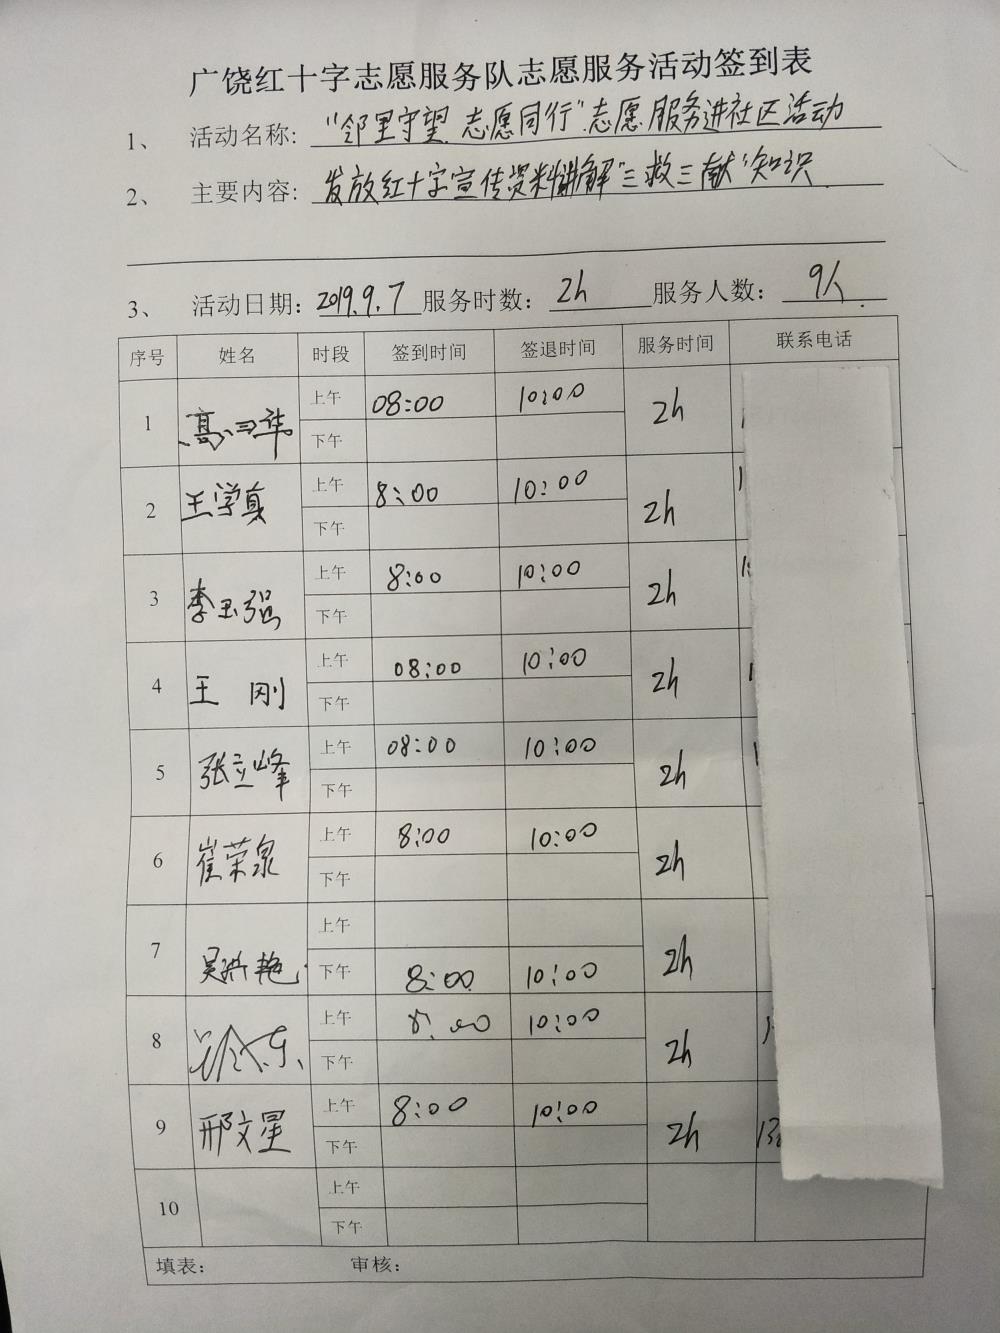 广饶红十字志愿服务队志愿服务活动签到表
1、 活动名称: "邻里守望 志愿同行"志愿服务进社区活动
2、 主要内容: 发放红十字宣传资料讲解"三救三献"知识
3、 活动日期: 2019.9.7 服务时数: 2h 服务人数: 9人
序号 姓名 时段 签到时间 签退时间 服务时间 联系电话
1 上午 08:00 10:00 2h
下午
2 王学真 上午 8:00 10:00 2h
下午
3 李玉强 上午 8:00 10:00 2h
下午
4 王 刚 上午 08:00 10:00 2h
下午
5 张立峰 上午 08:00 10:00 2h
下午
6 崔荣泉 上午 8:00 10:00 2h
下午
7 吴洪艳 上午 2h
下午 8:00 10:00
8 上午 8:00 10:00 2h
下午
9 邢文星 上午 8:00 10:00 2h
下午
10 上午
下午
填表: 审核: